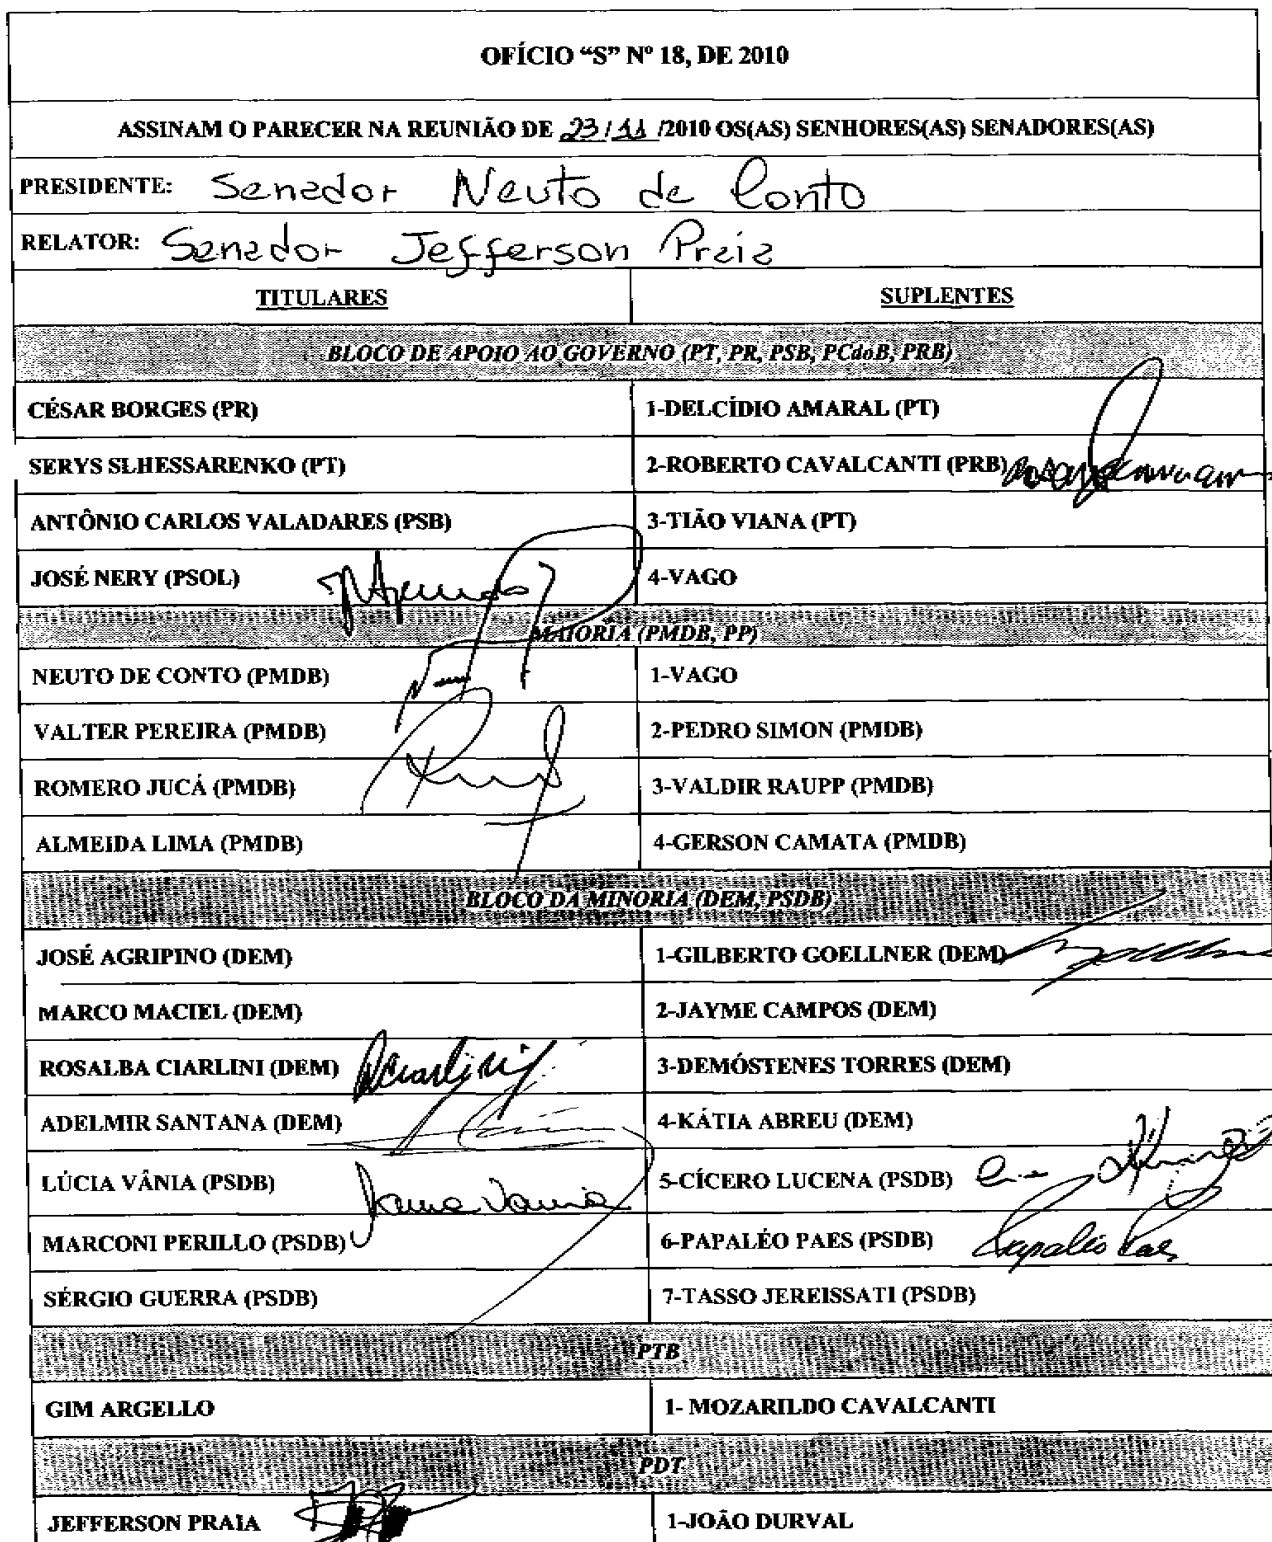 OFÍCIO “S” Nº 18, DE 2010
ASSINAM O PARECER NA REUNIÃO DE 23/11/2010 OS(AS) SENHORES(AS) SENADORES(AS)
PRESIDENTE: Senador Neuto de Conto
RELATOR: Senador Jefferson Praia
TITULARES SUPLENTES
BLOCO DE APOIO AO GOVERNO (PT, PR, PSB, PCdoB, PRB)
CÉSAR BORGES (PR) 1-DELCÍDIO AMARAL (PT)
SERYS SLHESSARENKO (PT) 2-ROBERTO CAVALCANTI (PRB)
ANTÔNIO CARLOS VALADARES (PSB) 3-TIÃO VIANA (PT)
JOSÉ NERY (PSOL) 4-VAGO
MAIORIA (PMDB, PP)
NEUTO DE CONTO (PMDB) 1-VAGO
VALTER PEREIRA (PMDB) 2-PEDRO SIMON (PMDB)
ROMERO JUCÁ (PMDB) 3-VALDIR RAUPP (PMDB)
ALMEIDA LIMA (PMDB) 4-GERSON CAMATA (PMDB)
BLOCO DA MINORIA (DEM, PSDB)
JOSÉ AGRIPINO (DEM) 1-GILBERTO GOELLNER (DEM)
MARCO MACIEL (DEM) 2-JAYME CAMPOS (DEM)
ROSALBA CIARLINI (DEM) RCiarlini 3-DEMÓSTENES TORRES (DEM)
ADELMIR SANTANA (DEM) 4-KÁTIA ABREU (DEM)
LÚCIA VÂNIA (PSDB) 5-CÍCERO LUCENA (PSDB)
MARCONI PERILLO (PSDB) 6-PAPALÉO PAES (PSDB) Papaléo Paes
SÉRGIO GUERRA (PSDB) 7-TASSO JEREISSATI (PSDB)
PTB
GIM ARGELLO 1- MOZARILDO CAVALCANTI
PDT
JEFFERSON PRAIA 1-JOÃO DURVAL